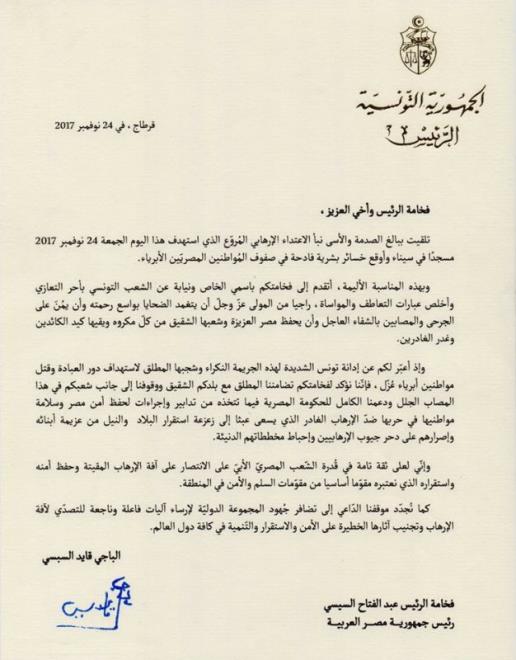 الجمهورية التونسية
الرئيس
قرطاج ، في 24 نوفمبر 2017
فخامة الرئيس وأخي العزيز ،
تلقيت ببالغ الصدمة والأسى نبأ الاعتداء الإرهابي المُروّع الذي استهدف هذا اليوم الجمعة 24 نوفمبر 2017
مسجدًا في سيناء وأوقع خسائر بشرية فادحة في صفوف المُواطنين المصريّين الأبرياء.
وبهذه المناسبة الأليمة، أتقدم إلى فخامتكم باسمي الخاص ونيابة عن الشعب التونسي بأحر التعازي
وأخلص عبارات التعاطف والمواساة ، راجيا من المولى عزّ وجلّ أن يتغمد الضحايا بواسع رحمته وأن يمُنّ على
الجرحى والمصابين بالشفاء العاجل وأن يحفظ مصر العزيزة وشعبها الشقيق من كلّ مكروه ويقيها كيد الكائدين
وغدر الغادرين.
وإذ أعبّر لكم عن إدانة تونس الشديدة لهذه الجريمة النكراء وشجبها المطلق لاستهداف دور العبادة وقتل
مواطنين أبرياء عُزّل ، فإنّنا نؤكد لفخامتكم تضامننا المطلق مع بلدكم الشقيق ووقوفنا إلى جانب شعبكم في هذا
المصاب الجلل ودعمنا الكامل للحكومة المصرية فيما تتخذه من تدابير وإجراءات لحفظ أمن مصر وسلامة
مواطنيها في حربها ضدّ الإرهاب الغادر الذي يسعى عبثا إلى زعزعة استقرار البلاد والنيل من عزيمة أبنائه
وإصرارهم على دحر جيوب الإرهابيين وإحباط مخططاتهم الدنيئة.
وإنّي لعلى ثقة تامة في قُدرة الشّعب المصريّ الأبيّ على الانتصار على آفة الإرهاب المقيتة وحفظ أمنه
واستقراره الذي نعتبره مقوّما أساسيا من مقوّمات السلم والأمن في المنطقة.
كما نُجدّد موقفنا الدّاعي إلى تضافر جُهود المجموعة الدوليّة لإرساء آليات فاعلة وناجعة للتصدّي لآفة
الإرهاب وتجنيب آثارها الخطيرة على الأمن والاستقرار والتّنمية في كافة دول العالم.
الباجي قايد السبسي
فخامة الرئيس عبد الفتاح السيسي
رئيس جمهورية مصر العربية